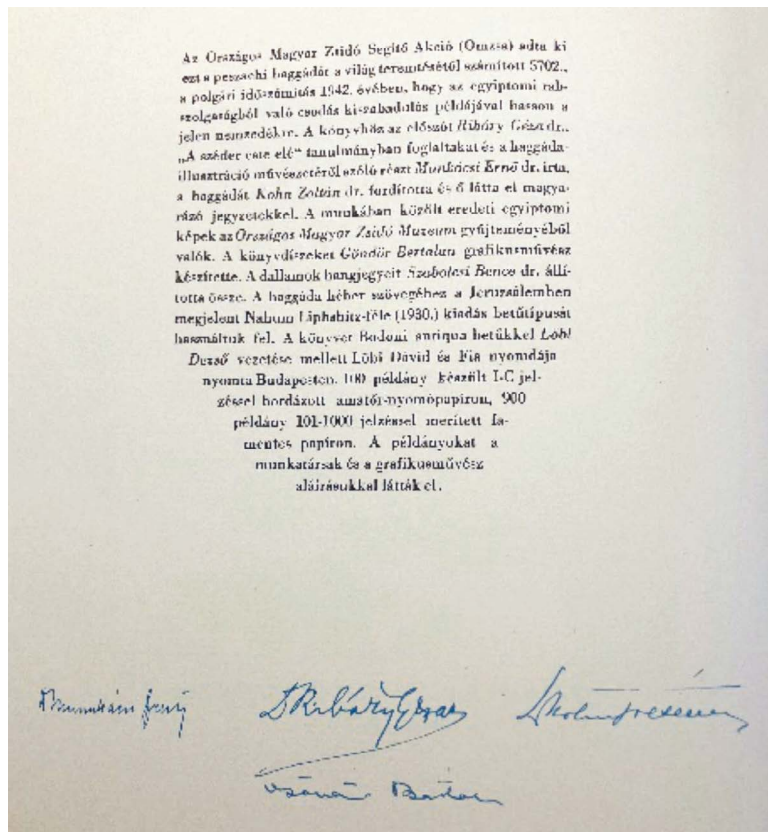 Az Országos Magyar Zsidó Segítő Akció (Omzsa) adta ki
ezt a peszachi haggádát a világ teremtésétől számított 5702.,
a polgári időszámítás 1942. évében, hogy az egyiptomi rab-
szolgaságból való csodás kiszabadulás példájával hasson a
jelen nemzedékre. A könyvhöz az előszót Ribáry Géza dr.,
„A széder este elé“ tanulmányban foglaltakat és a haggáda-
illusztráció művészetéről szóló részt Munkácsi Ernő dr. írta,
a haggádát Kohn Zoltán dr. fordította és ő látta el magya-
rázó jegyzetekkel. A munkában közölt eredeti egyiptomi
képek az Országos Magyar Zsidó Muzeum gyűjteményéből
valók. A könyvdíszeket Göndör Bertalan grafikusművész
készítette. A dallamok hangjegyeit Szabolcsi Bence dr. állí-
totta össze. A haggáda héber szövegéhez a Jeruzsálemben
megjelent Nahum Liphshitz-féle (1930.) kiadás betűtípusát
használtuk fel. A könyvet Bodoni antiqua betűkkel Löbl
Dezső vezetése mellett Löbl Dávid és Fia nyomdája
nyomta Budapesten. 100 példány készült I-C jel-
zéssel bordázott amatőr-nyomópapiron, 900
példány 101-1000 jelzéssel merített fa-
mentes papiron. A példányokat a
munkatársak és a grafikusművész
aláirásukkal látták el.
Munkácsi Ernő Dr Ribáry Géza